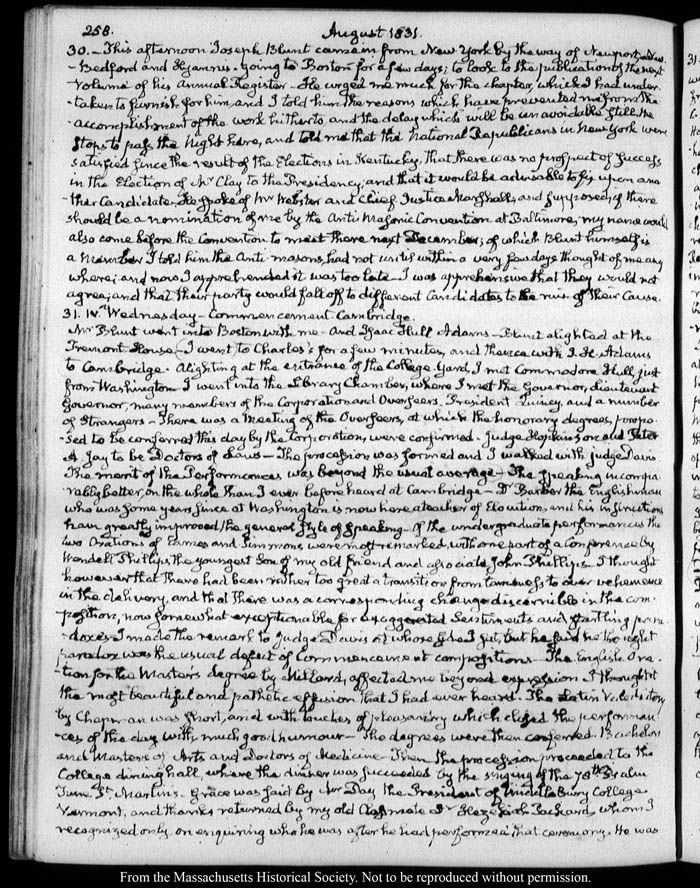 258. August 1831.
30. - This afternoon Joseph Blunt came in from New York by the way of Newport, New-
-Bedford and Hyannis - going to Boston for a few days; to look to the publication of the next
volume of his Annual Register - He urged me much for the chapter, which I had under-
-taken to furnish for him, and I told him the reasons which have prevented me from the
accomplishment of the work hitherto and the delay which will be unavoidable still. He
stops to pass the Night here, and told me that the National Republicans in New York were
satisfied since the result of the Elections in Kentucky, that there was no prospect of success
in the Election of Mr Clay to the Presidency, and that it would be advisable to fix upon ano-
-ther Candidate. He spoke of Mr Webster and Chief Justice Marshall, and supposed, if there
should be a nomination of me by the Anti Masonic Convention at Baltimore, my name would
also come before the Convention to meet there next December; of which Blunt himself is
a Member. I told him the Anti-masons, had not until within a very few days thought of me any
where; and now I apprehended it was too late - I was apprehensive that they would not
agree; and that their party would fall off to different Candidates to the ruin of their Cause.
31. IV. Wednesday - Commencement. Cambridge.
Mr Blunt went into Boston with me - And Isaac Hull Adams - Blunt alighted at the
Tremont House - I went to Charles's for a few minutes, and thence with I. H. Adams
to Cambridge. Alighting at the entrance of the College Yard, I met Commodore Hull, just
from Washington - I went into the Library Chamber, where I met the Governor, Lieutenant
Governor, many members of the Corporation and Overseers. President Quincy, and a number
of Strangers - There was a Meeting of the Overseers, at which the honorary degrees, propo-
-sed to be conferred this day by the Corporation, were confirmed. Judge Hopkinson and Peter
A. Jay to be Doctors of Laws - The procession was formed and I walked with Judge Davis
The merit of the Performances was beyond the usual average - The speaking incompa-
-rably better, on the whole than I ever before heard at Cambridge - Dr Barber the Englishman
who was some years since at Washington is now here a teacher of Elocution, and his instructions
have greatly improved the general style of speaking - Of the undergraduate performances the
two Orations of Eames and Simmons were most remarked, with one part of a Conference by
Wendell Phillips the youngest Son of my old friend and associate John Phillips. I thought
however that there had been rather too great a transition from tameness to over vehemence
in the delivery, and that there was a corresponding change discernible in the com-
-position, now somewhat exceptionable for exaggerated Sentiments and startling para-
-doxes. I made the remark to Judge Davis at whose side I sat, but he said he thought
paradox was the usual defect of Commencement compositions - The English Ora-
-tion for the Master's degree by Hillard, affected me beyond expression. I thought it
the most beautiful and pathetic effusion that I had ever heard. The Latin Valedictory
by Chapman was short, and with touches of pleasantry which closed the performan-
-ces of the day with much good humour - The degrees were then conferred. Bachelors
and Masters of Arts and Doctors of Medicine - Then the procession proceeded to the
College dining hall, where the dinner was succeeded by the singing of the 78th Psalm
Tune St Martins. Grace was said by Mr Day the President of Middlebury College
Vermont, and thanks returned by my old Classmate Dr Hezekiah Packard, whom I
recognized only on enquiring who he was after he had performed that ceremony. He was
From the Massachusetts Historical Society. Not to be reproduced without permission.